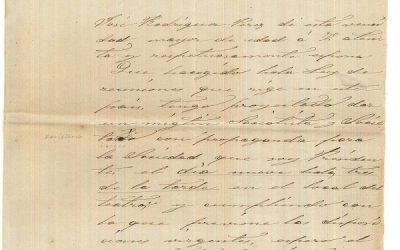 José Rodríguez Perez de esta vecin
dad, mayor de edad á V. aten
ta y respetuosamente espone
Que acogido a la Ley de
reuniones que rige en este
país, tengo proyectado dar
un mitin Socialista y
como propaganda para
la Sociedad que soy Presiden
te, el día nueve a las tres
de la tarde en el local del
teatro; y cumpliendo con
lo que previene las disposi
ciones vigentes, espero el